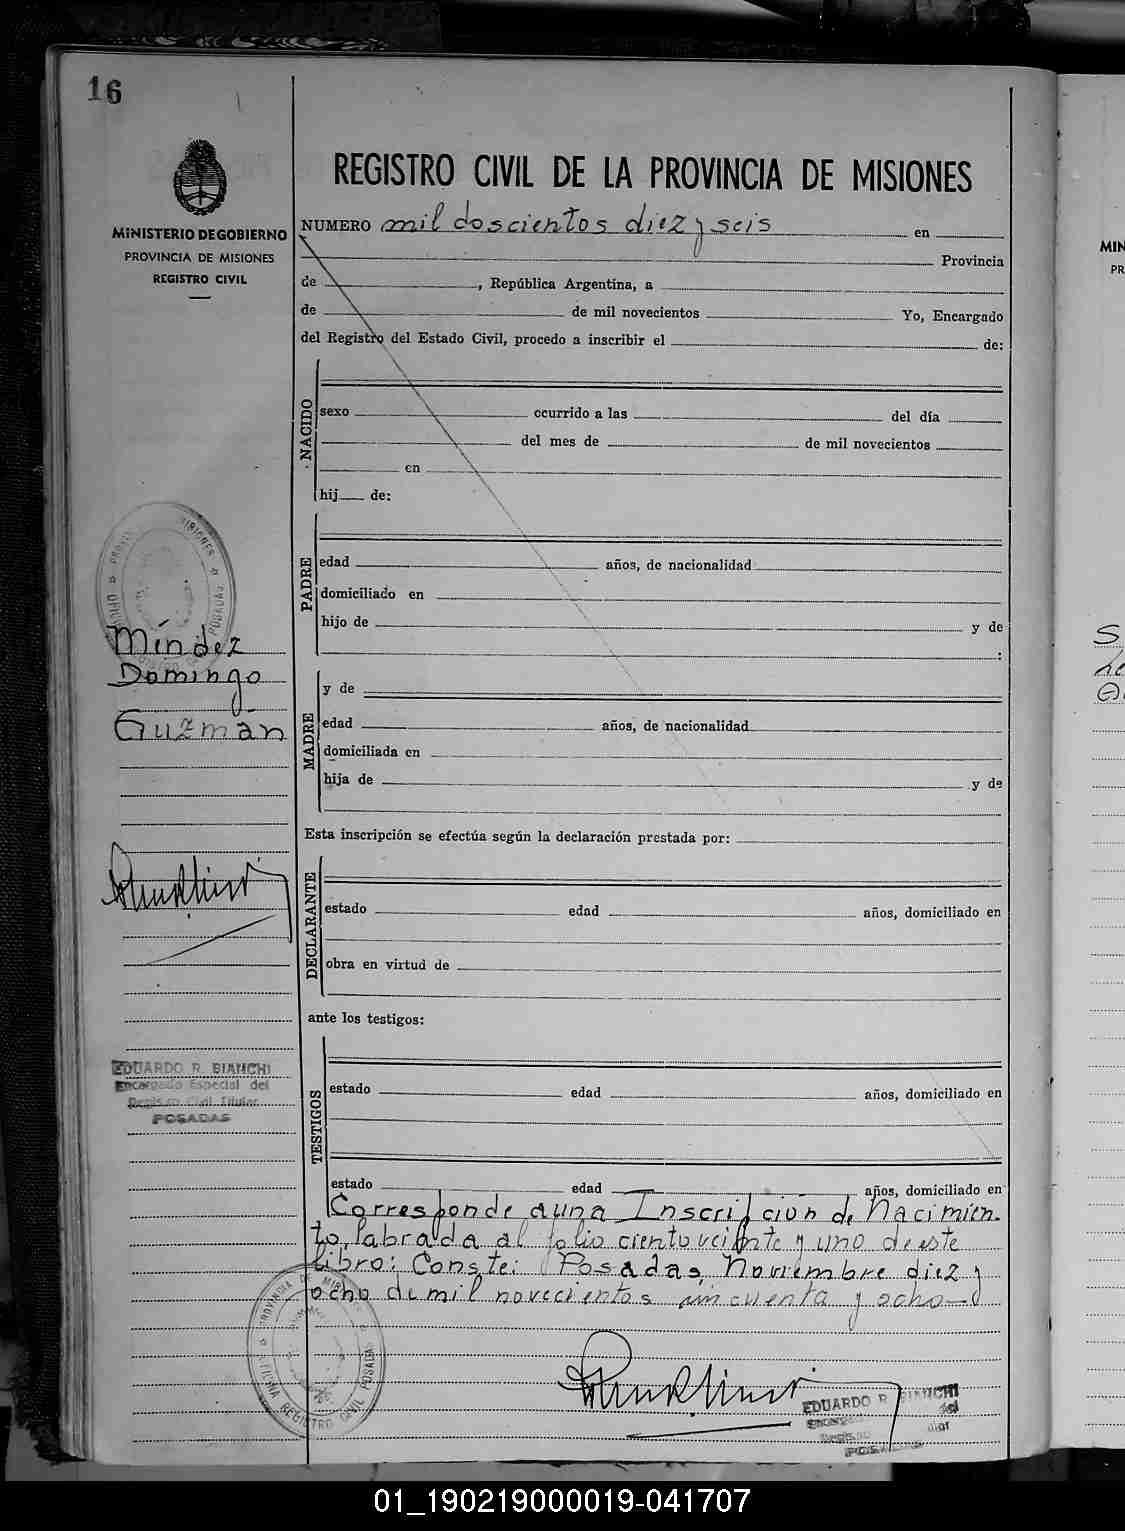 16
MINISTERIO DE GOBIERNO
PROVINCIA DE MISIONES
REGISTRO CIVIL
REGISTRO CIVIL DE LA PROVINCIA DE MISIONES
NUMERO mil doscientos diez y seis en
Provincia
de , República Argentina, a
de de mil novecientos Yo, Encargado
del Registro del Estado Civil, procedo a inscribir el de:
NACIDO
sexo ocurrido a las del día
del mes de de mil novecientos
en
hij de:
PADRE
edad años, de nacionalidad
domiciliado en
hijo de y de
:
Míndez
Domingo
Guzmán
MADRE
y de
edad años, de nacionalidad
domiciliada en
hija de y de
Esta inscripción se efectúa según la declaración prestada por:
DECLARANTE
estado edad años, domiciliado en
obra en virtud de
ante los testigos:
EDUARDO R. BIANCHI
Encargado Especial del
Registro Civil Titular
POSADAS
TESTIGOS
estado edad años, domiciliado en
estado edad años, domiciliado en
Corresponde a una Inscripción de Nacimien-
to, labrada al folio ciento veinte y uno de este
libro: Conste: Posadas, Noviembre diez y
ocho de mil novecientos cincuenta y ocho
PROVINCIA DE MISIONES
OFICINA REGISTRO CIVIL POSADAS
EDUARDO R. BIANCHI
del
POSADAS
MIN
PR
01_190219000019-041707